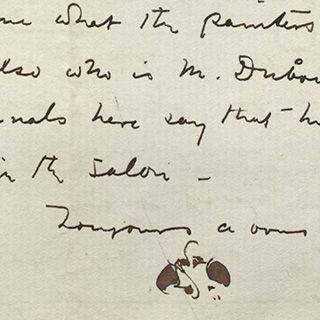 me what the painters
also who is M. Dubou
nals here say that h
in the Salon –
Toujours a vous